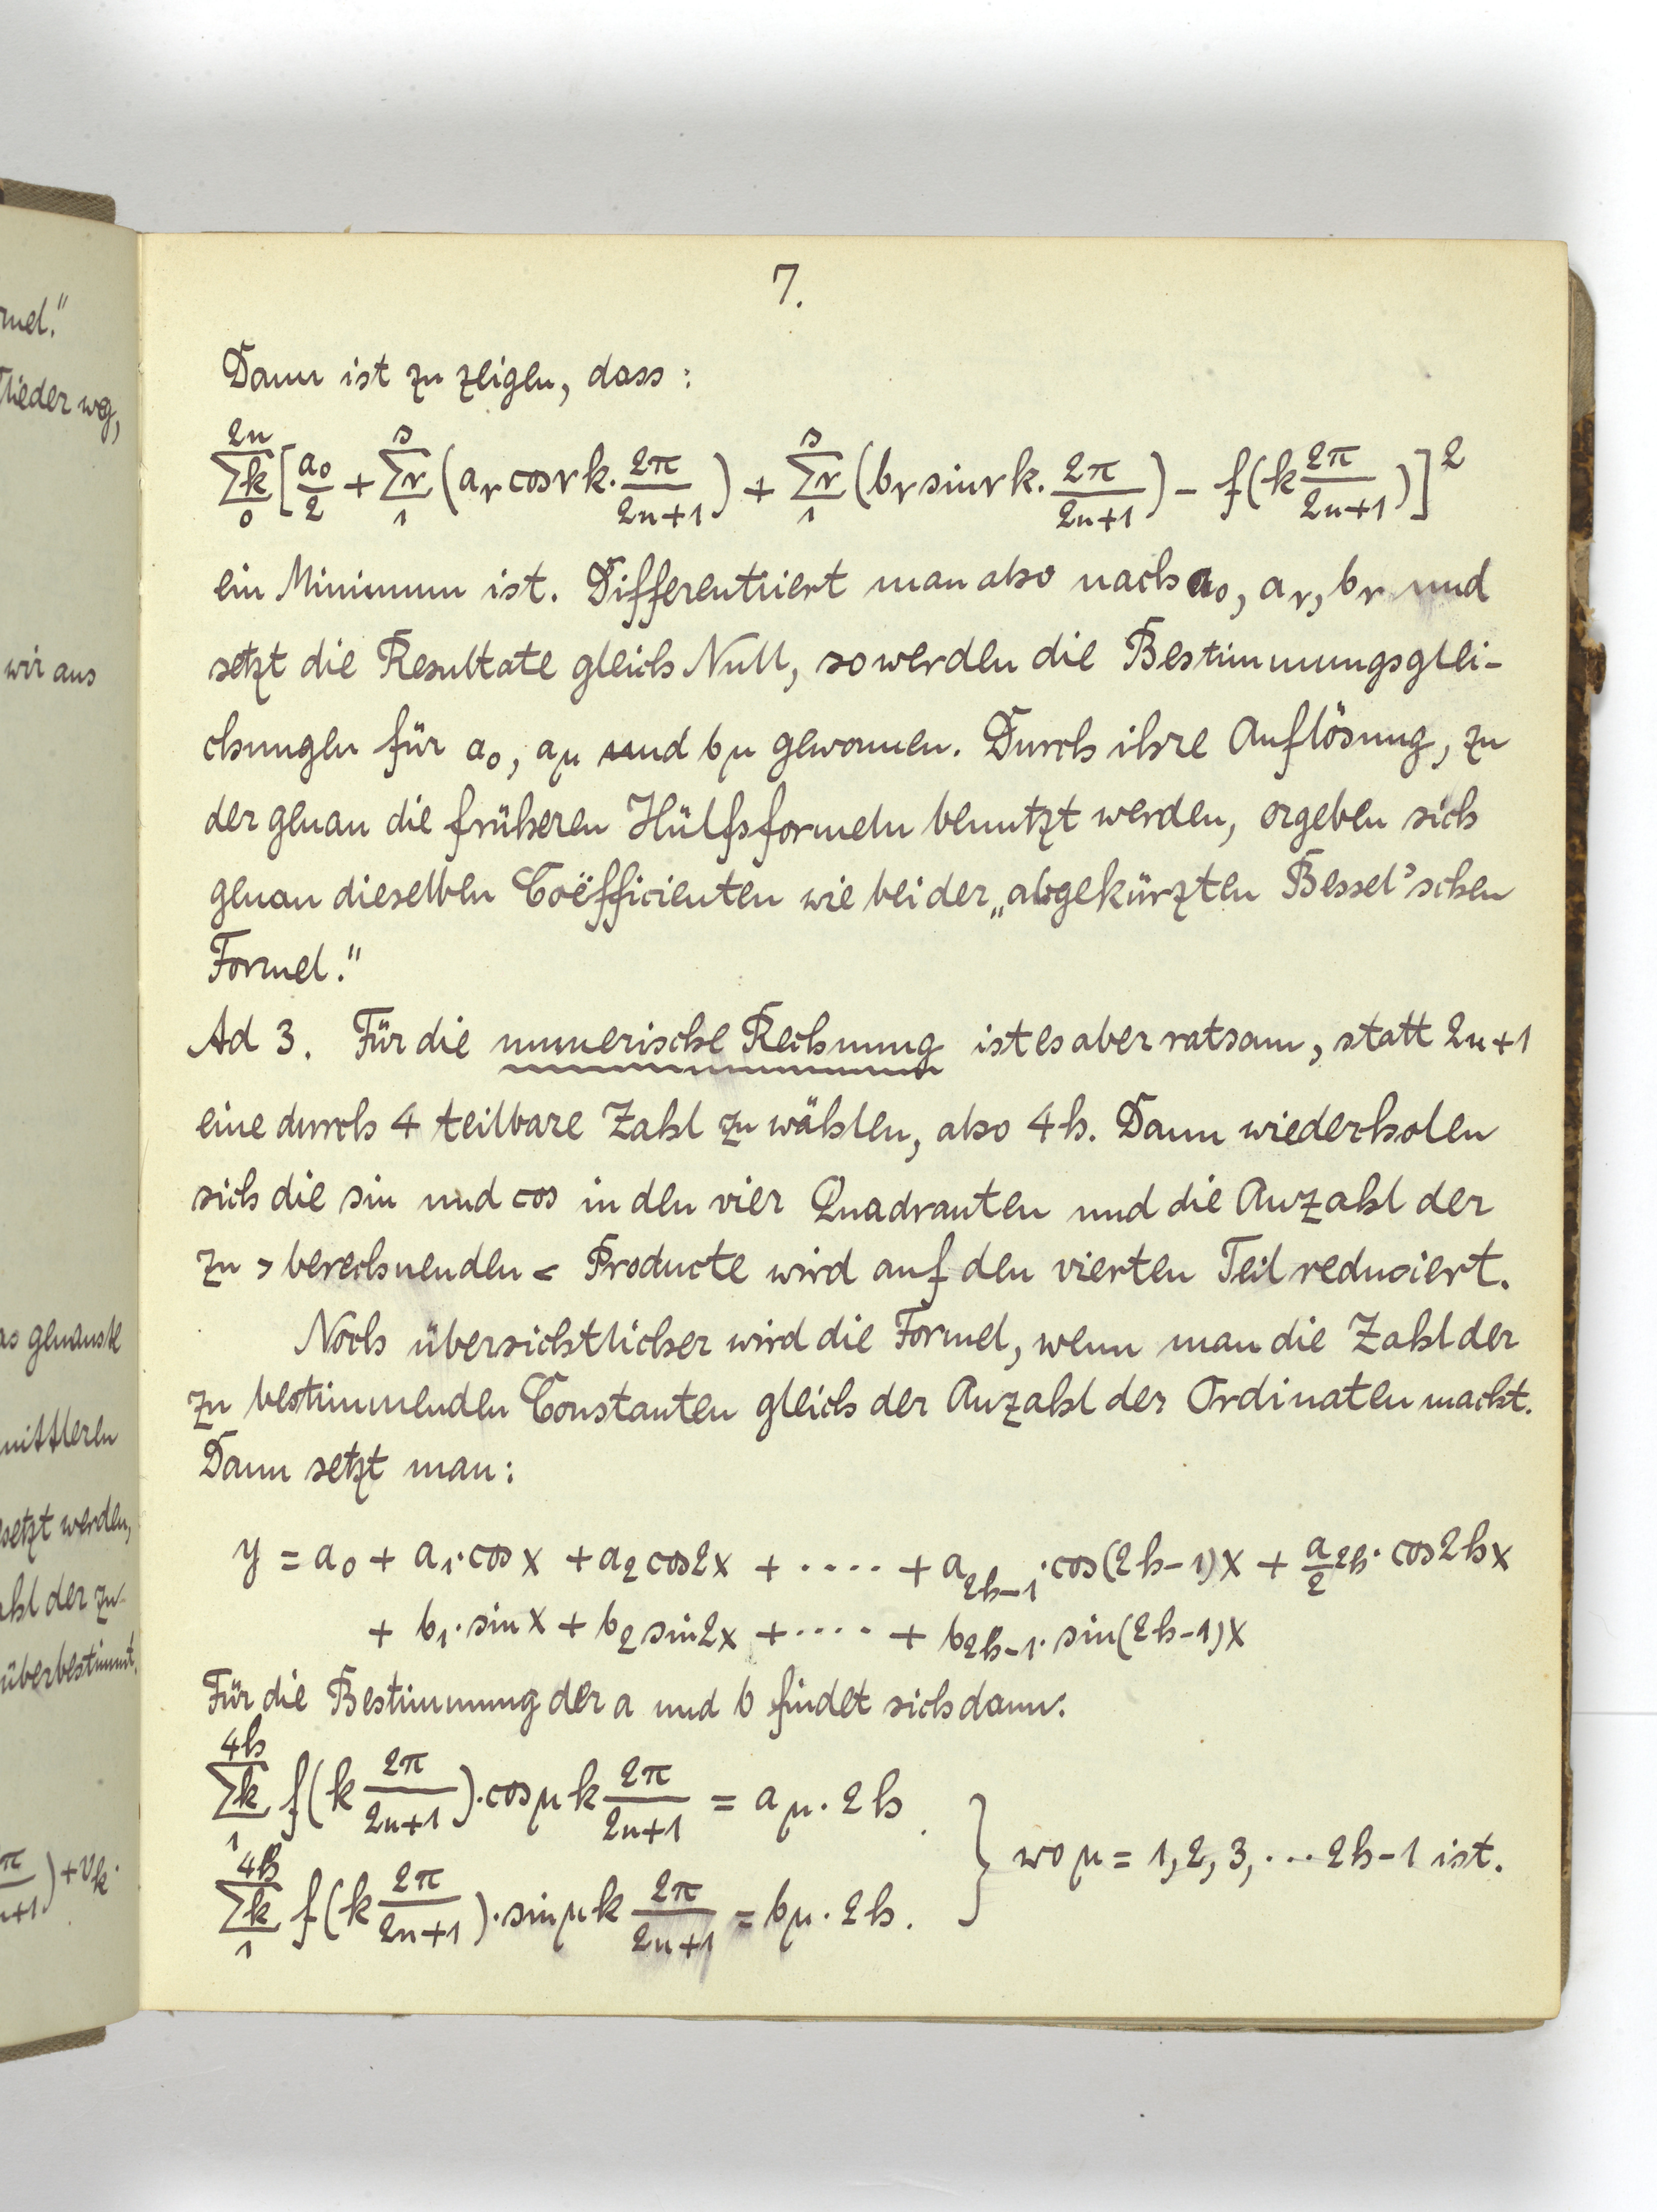 7.
Dann ist zu zeigen, dass:
\sum_{0}^{2n} k [ \frac{a_0}{2} + \sum_{1}^{s} r ( a_r cos r k \cdot \frac{2π}{2n+1} ) + \sum_{1}^{s} r ( b_r sin r k \cdot \frac{2π}{2n+1} ) - f ( k \frac{2π}{2n+1} ) ]^2
ein Minimum ist. Differentiiert man also nach a_0, a_r, b_r und
setzt die Resultate gleich Null, so werden die Bestimmungsglei-
chungen für a_0, a_μ und b_μ gewonnen. Durch ihre Auflösung, zu
der genau die früheren Hülfsformeln benutzt werden, ergeben sich
genau dieselben Coëfficienten wie bei der „abgekürzten Bessel'schen
Formel."
Ad 3. Für die numerische Rechnung ist es aber ratsam, statt 2n+1
eine durch 4 teilbare Zahl zu wählen, also 4h. Dann wiederholen
sich die sin und cos in den vier Quadranten und die Anzahl der
zu > berechnenden < Producte wird auf den vierten Teil reduciert.
Noch übersichtlicher wird die Formel, wenn man die Zahl der
zu bestimmenden Constanten gleich der Anzahl der Ordinaten macht.
Dann setzt man:
y = a_0 + a_1 \cdot cos x + a_2 cos 2x + \cdots\cdot + a_{2h-1} \cdot cos(2h-1)x + \frac{a}{2}_{2h} \cdot cos 2hx
+ b_1 \cdot sin x + b_2 sin 2x + \cdots\cdot + b_{2h-1} \cdot sin(2h-1)x
Für die Bestimmung der a und b findet sich dann:
\sum_{1}^{4h} k f ( k \frac{2π}{2n+1} ) \cdot cos μ k \frac{2π}{2n+1} = a_μ \cdot 2h.
\sum_{1}^{4h} k f ( k \frac{2π}{2n+1} ) \cdot sin μ k \frac{2π}{2n+1} = b_μ \cdot 2h.
} wo μ = 1, 2, 3, \cdots 2h-1 ist.
wir aus
mittleren
setzt werden,
überbestimmt.